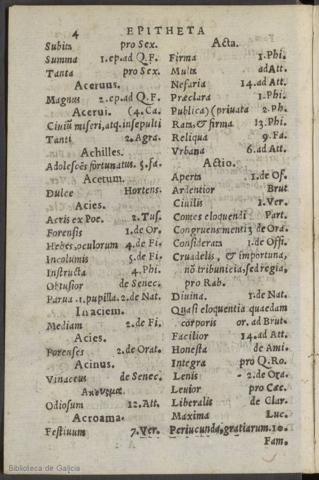 4 EPITHETA
Subita pro Sex.
Summa 1.ep.ad Q.F.
Tanta pro Sex.
Aceruus.
Magnus 2.ep.ad Q.F.
Acerui. (4.Ca.
Ciuiũ miseri, atq, insepulti
Tanti 2.Agra.
Achilles.
Adolescẽs fortunatus. 5.fa.
Acetum.
Dulce Hortens.
Acies.
Acris ex Poe. 2.Tus.
Forensis 1.de Or.
Hebes, oculorum 4.de Fi.
Incolumis 5.de Fi.
Instructa 4.Phi.
Obtusior de Senec.
Parua .1.pupilla. 2.de Nat.
In aciem.
Mediam 2.de Fi.
Acies.
Forenses 2.de Orat.
Acinus.
Vinaceus de Senec.
Odiosum 12.Att.
Acroama.
Festiuum 7.Ver.
Acta.
Firma 1.Phi.
Multa ad Att.
Nefaria 14.ad Att.
Præclara 1.Phi.
Publica) (priuata 2.Ph.
Rata, & firma 13.Phi.
Reliqua 9.Fa.
Vrbana 6.ad Att.
Actio.
Aperta 1.de Of.
Ardentior Brut
Ciuilis 1.Ver.
Comes eloquendi Part.
Congruens menti 3.de Ora.
Considerata 1.de Offi.
Crudelis, & importuna,
nõ tribunicia, sed regia,
pro Rab.
Diuina. 1.de Nat.
Quasi eloquentia quædam
corporis or.ad Brut.
Facilior 14.ad Att.
Honesta de Ami.
Integra pro Q.Ro.
Lenis 2.de Ora.
Leuior pro Cæc.
Liberalis de Clar.
Maxima Luc.
Periucunda, gratiarum.10.
Fam.
Biblioteca de Galicia